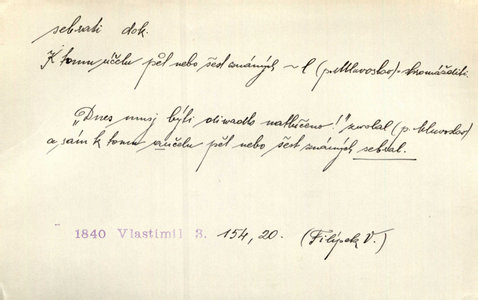 sebrati dok.
K tomu účelu pět nebo šest známých ~l (p. Mluvoslav) shromážditi.
"Dnes musj býti diwadlo natlučeno!" zwolal (p. Mluvoslav)
a sám k tomu aučelu pět nebo šest známých sebral.
1840 Vlastimil 3. 154, 20. (Filípek V.)